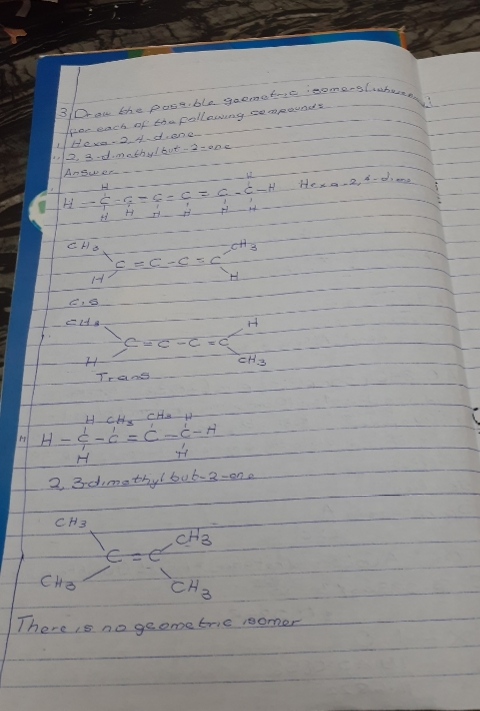 3. Draw the possible geometric isomers (where any)
for each of the following compounds
i. Hexa-2,4-diene
ii. 2,3-dimethylbut-2-ene
Answer
H
H
H - C - C = C - C = C - C - H Hexa-2,4-diene
H H H H H H
CH3 CH3
C = C - C = C
H H
cis
CH3 H
C = C - C = C
H CH3
Trans
H CH3 CH3 H
H - C - C = C - C - H
H H
2,3-dimethylbut-2-ene
CH3 CH3
C = C
CH3 CH3
There is no geometric isomer